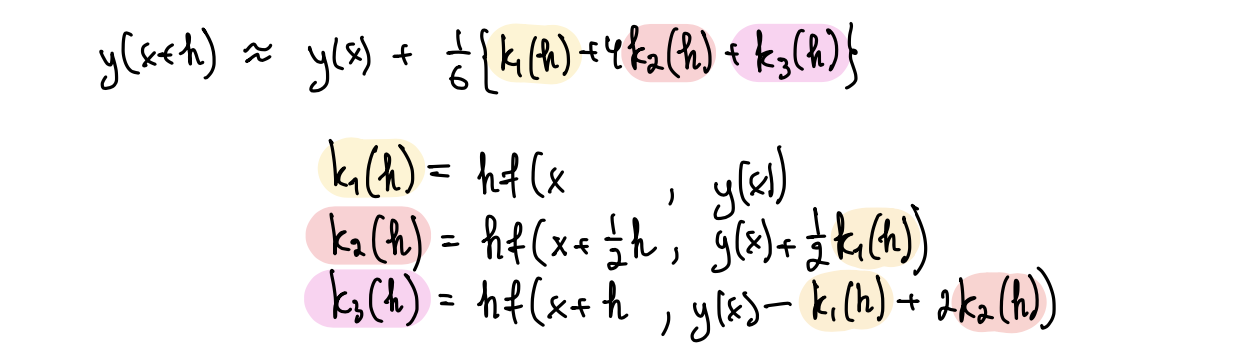 y(x+h) ≈ y(x) + 1/6 {k₁(h) + 4k₂(h) + k₃(h)}
k₁(h) = hf(x , y(x))
k₂(h) = hf(x + 1/2 h , y(x) + 1/2 k₁(h))
k₃(h) = hf(x + h , y(x) − k₁(h) + 2k₂(h))